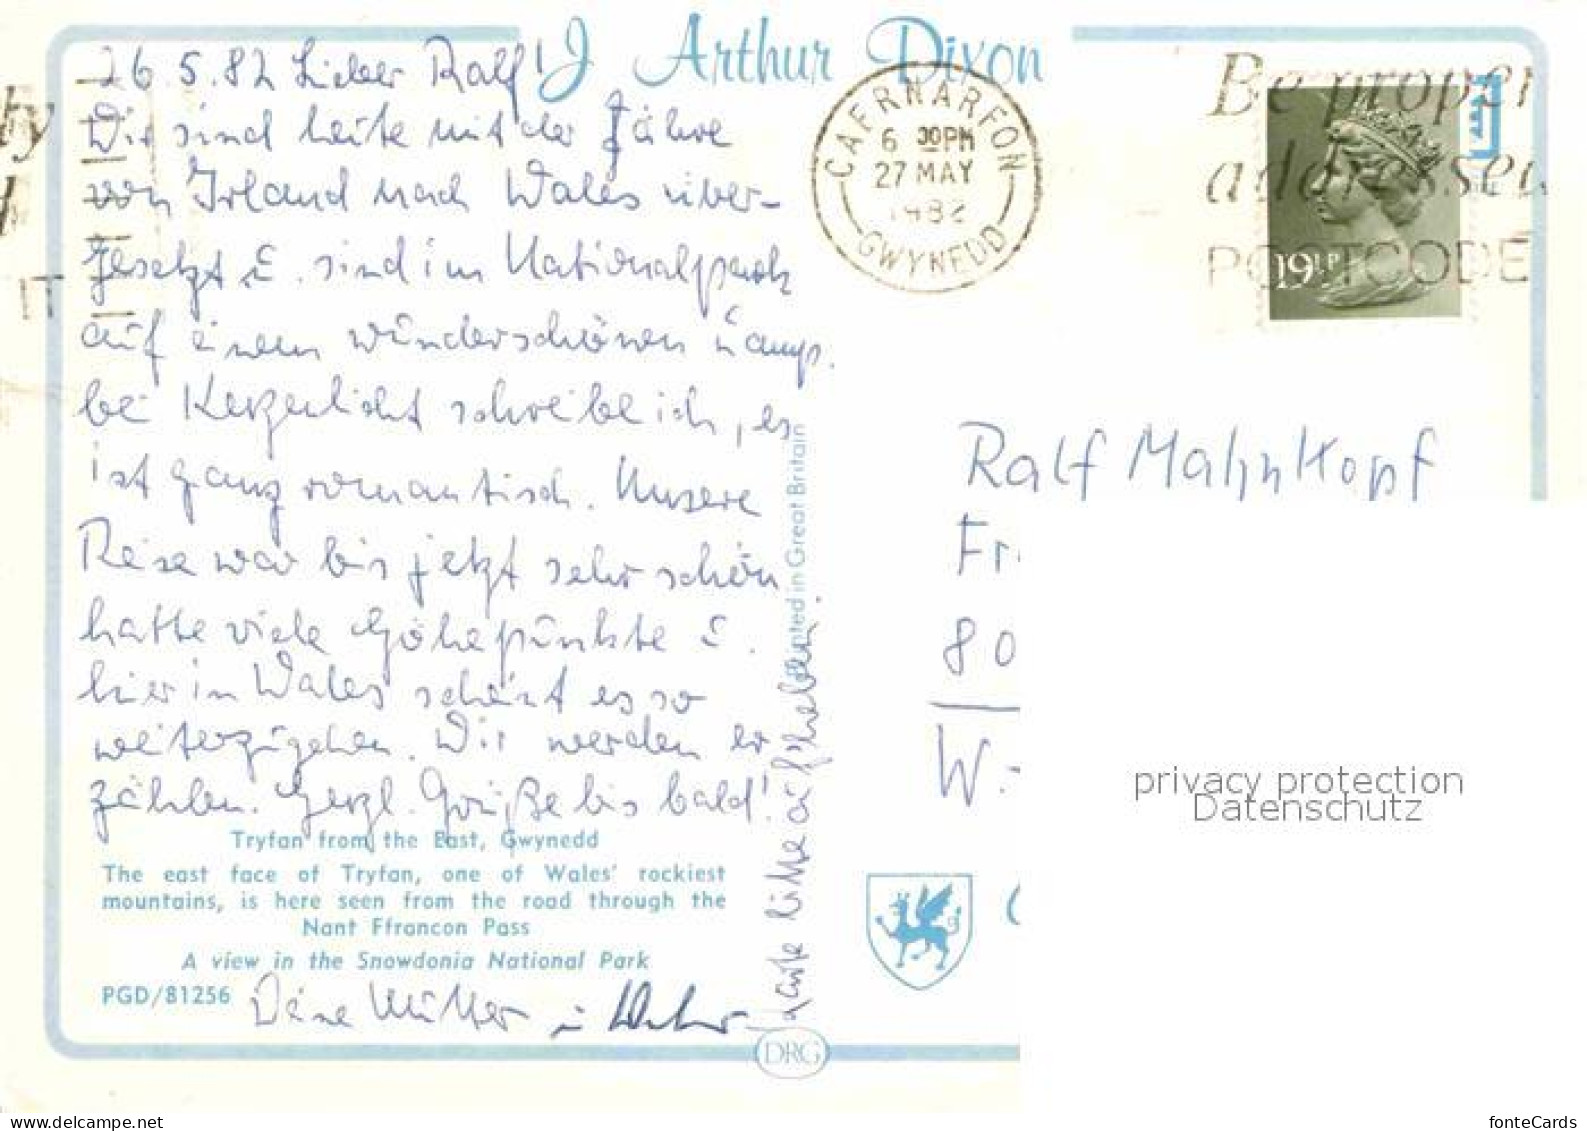 J Arthur Dixon
26.5.82 Lieber Ralf!
Wir sind heute mit der Fähre
von Irland nach Wales über-
gesetzt u. sind im Nationalpark
auf einem wunderschönen Camp.
bei Kerzenlicht schreibe ich, es
ist ganz romantisch. Unsere
Reise war bis jetzt sehr schön
hatte viele Höhepunkte u.
hier in Wales scheint es so
weiterzugehen. Wir werden er
zählen. Herzl. Grüße bis bald!
Tryfan from the East, Gwynedd
The east face of Tryfan, one of Wales' rockiest
mountains, is here seen from the road through the
Nant Ffrancon Pass
A view in the Snowdonia National Park
PGD/81256
Deine Mutter u.
Karte bitte aufheben.
Printed in Great Britain
DRG
CAERNARFON
6 30PM
27 MAY
1982
GWYNEDD
Be proper
addressed
POSTCODE
19½P
Ralf Mahnkopf
Fr.
80
W.-
privacy protection
Datenschutz
fonteCards
www.delcampe.net